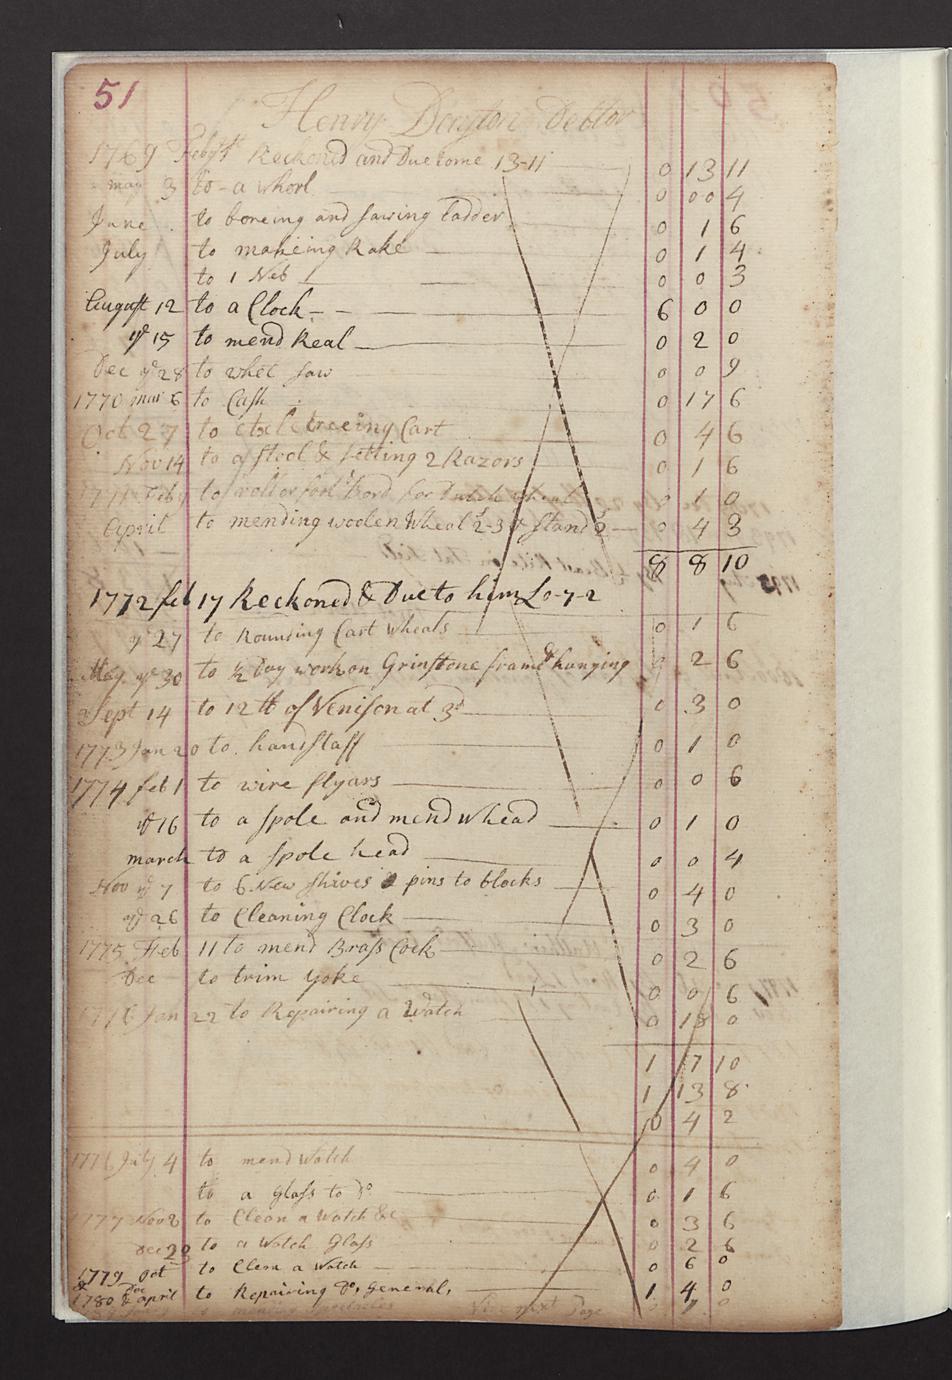 51
Henry Dayton Debtor
1769 Feby Reckoned and Due to me 13-11 0 13 11
may 3 to a whorl 0 00 4
June to boreing and sawing Ladder 0 1 6
July to makeing Rake 0 1 4
to 1 Neb 0 0 3
August 12 to a Clock 6 0 0
ye 15 to mend Real 0 2 0
Dec ye 28 to whet saw 0 0 9
1770 mar 6 to Cash 0 17 6
Oct 27 to treeing Cart 0 4 6
Nov 14 to a Stool & Setting 2 Razors 0 1 6
1771 Feb to Bord for Dutch wheal 0 1 0
April to mending woolen Wheal 2-3 & Stand 2 0 4 3
8 8 10
1772 feb 17 Reckoned & Due to him £0-7-2
ye 27 to Rounding Cart Wheals 0 1 6
May ye 30 to ½ Day work on Grinstone frame & hanging 0 2 6
Sept 14 to 12 tt of Venison at 3d 0 3 0
1773 Jan 20 to handstaff 0 1 0
1774 feb 1 to wire flyars 0 0 6
ye 16 to a spole and mend whead 0 1 0
march to a spole head 0 0 4
Nov ye 7 to 6 New Shives & pins to blocks 0 4 0
ye 26 to Cleaning Clock 0 3 0
1775 Feb 11 to mend Brass Cock 0 2 6
Dec to trim yoke 0 0 6
1776 Jan 22 to Repairing a Watch 0 18 0
1 17 10
1 13 8
0 4 2
1776 July 4 to mend Watch 0 4 0
to a Glass to Do 0 1 6
1777 Nov 8 to Clean a Watch &c 0 3 6
Dec 22 to a Watch Glass 0 2 6
1779 Oct to Clean a Watch 0 6 0
1780 april to Repairing Do, General, 1 4 0
to mending Spectacles next Page